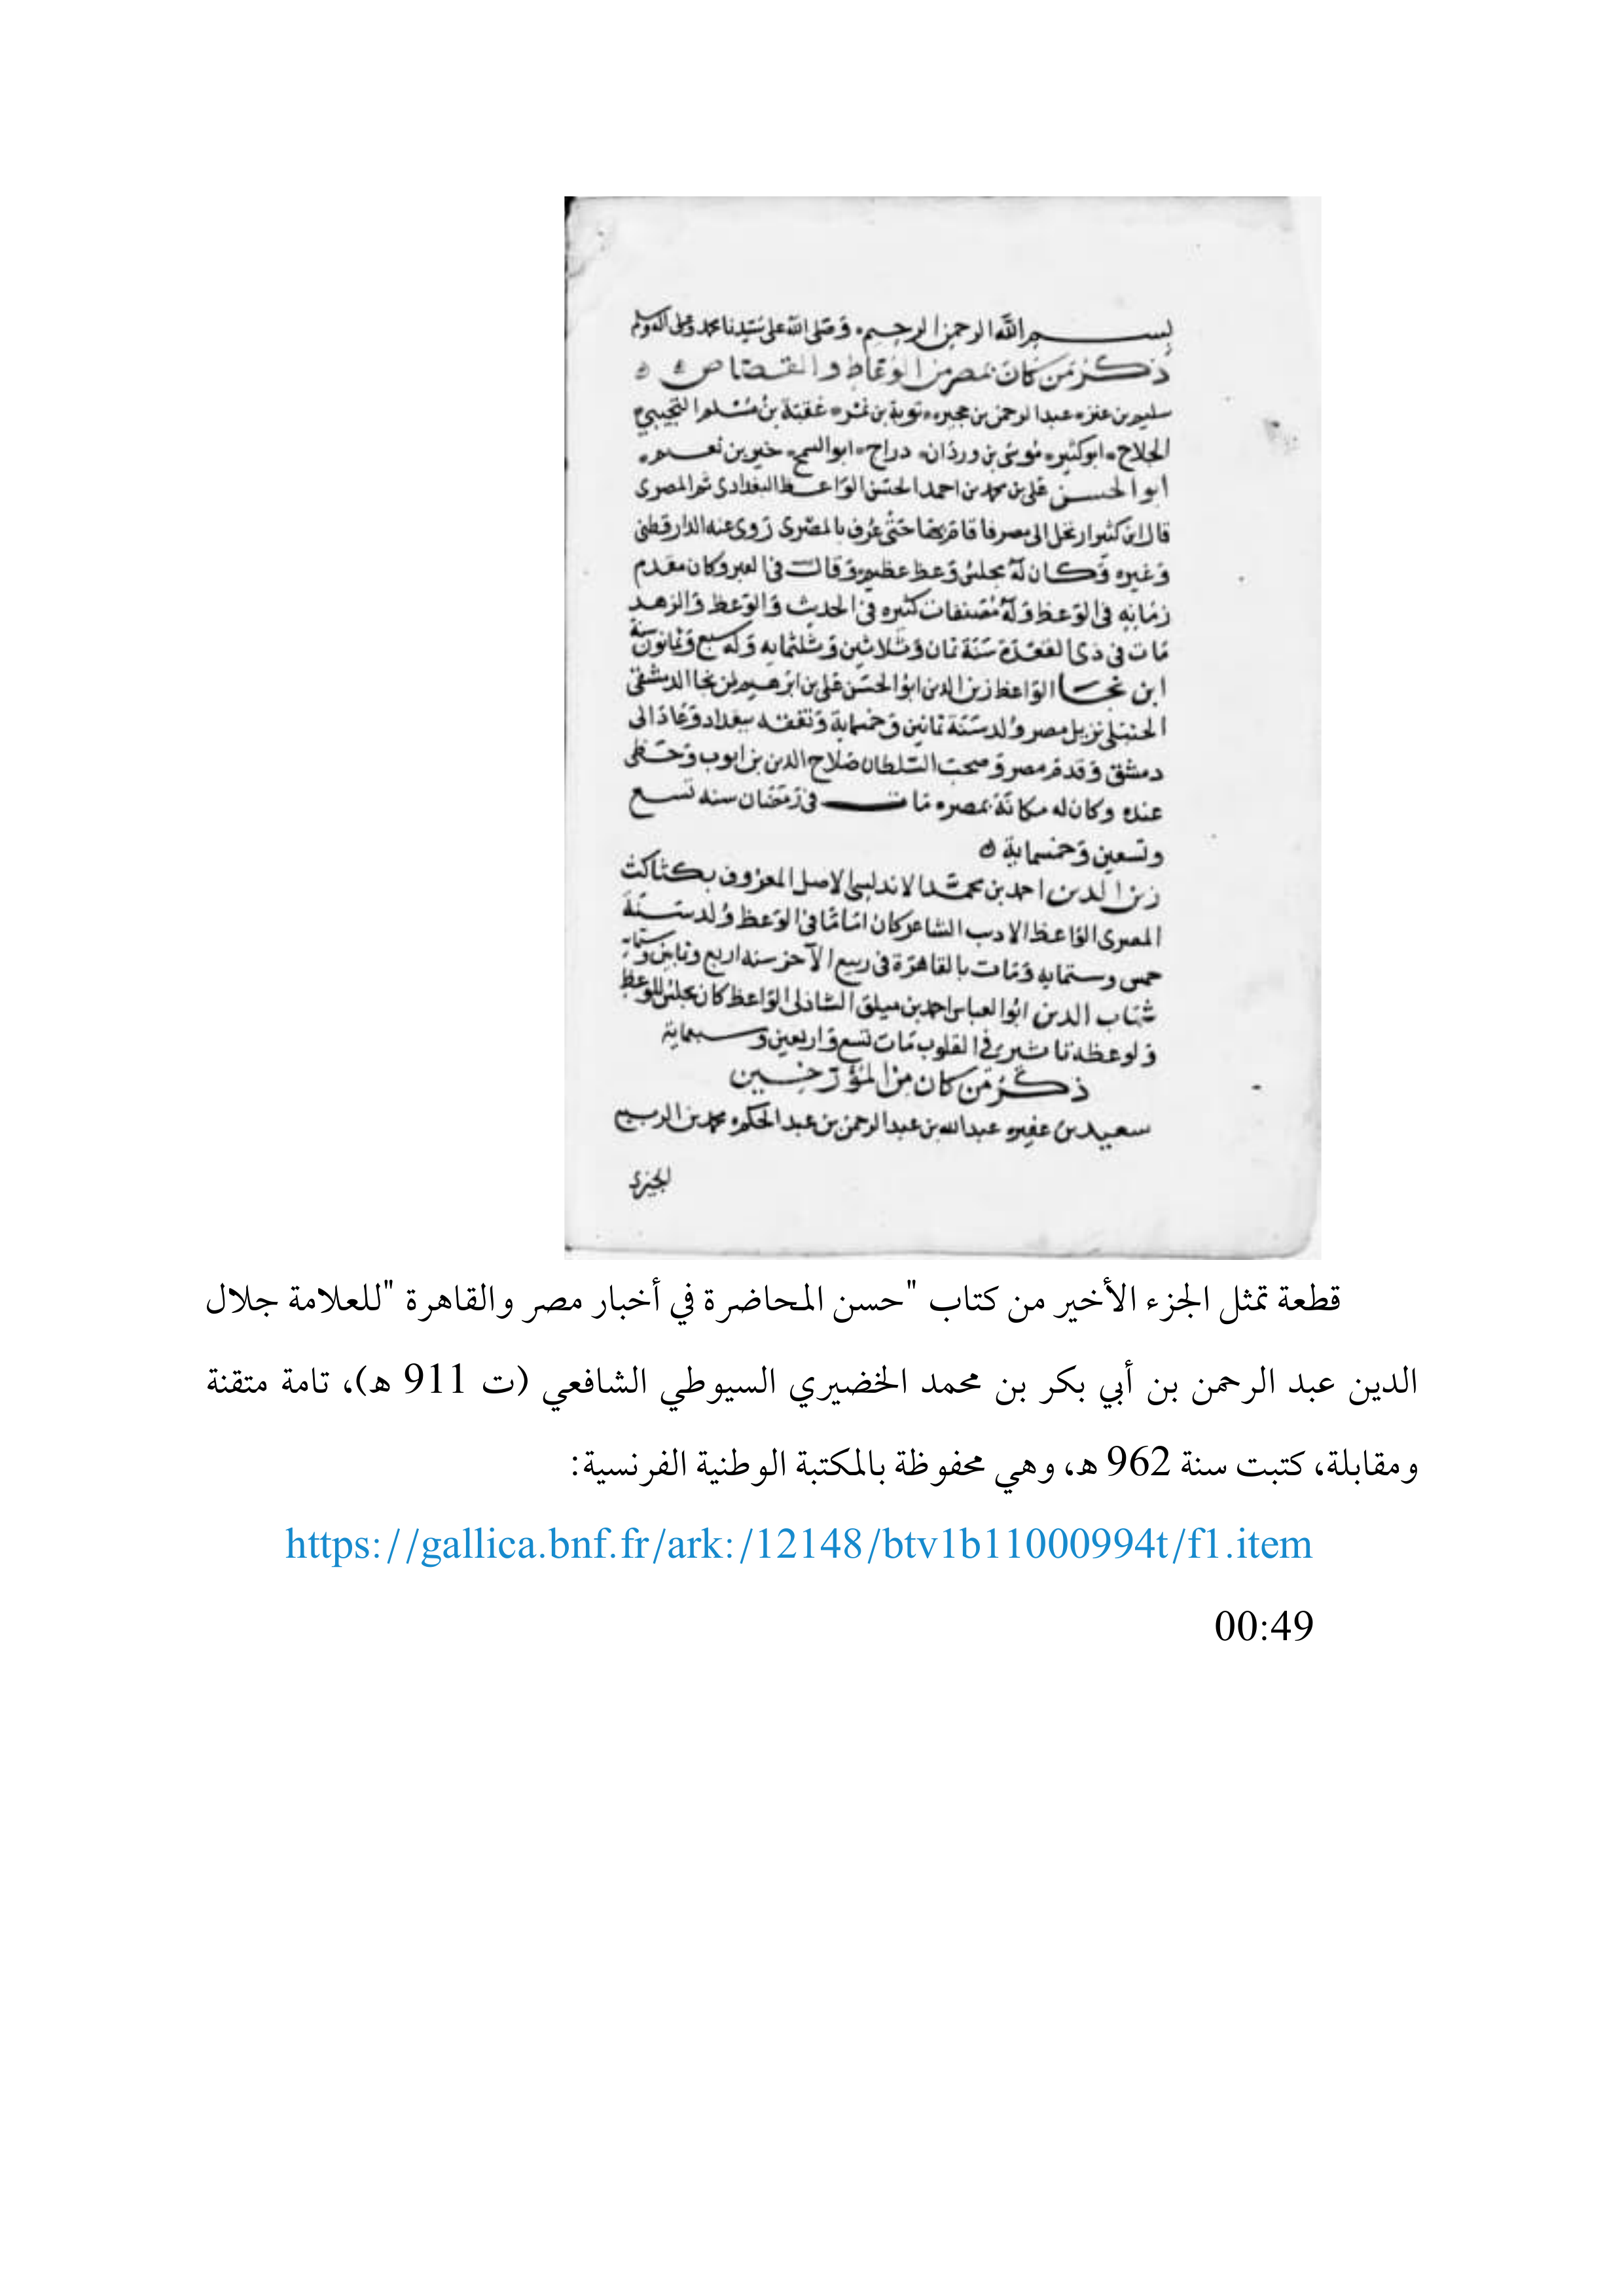 بسم الله الرحمن الرحيم وصلى الله على سيدنا محمد وعلى اله وسلم
ذكر من كان بمصر من الوعاظ والقصاص
سليم بن عنز عبد الرحمن بن حجيره توبة بن نمر عقبة بن مسلم التجيبي
الجلاح ابو كثير موسى بن وردان دراج ابو السمح خير بن نعيم
ابو الحسن على بن محمد بن احمد الحسن الواعظ البغدادى ثم المصرى
قال ابن كثير ارتحل الى مصر فاقام بها حتى عرف بالمصرى روى عنه الدارقطنى
وغيره وكان له مجلس وعظ عظيم وقال فى العبر وكان مقدم
زمانه فى الوعظ وله مصنفات كثيره فى الحديث والوعظ والزهد
مات فى ذى القعدة سنة ثمان وثلاثين وثلثمايه وله سبع وثمانون سنة
ابن نجا الواعظ زين الدين ابو الحسن على بن ابرهيم بن نجا الدمشقى
الحنبلى نزيل مصر ولد سنة ثمانين وخمسماية وتفقه ببغداد وعاد الى
دمشق وقدم مصر وصحب السلطان صلاح الدين بن ايوب وحظى
عنده وكان له مكانة بمصر مات فى رمضان سنه تسع
وتسعين وخمسماية
زين الدين احمد بن محمد الاندلسى الاصل المعروف بكتاكت
المصرى الواعظ الادب الشاعر كان اماما فى الوعظ ولد سنة
خمس وستمايه ومات بالقاهرة فى ربيع الآخر سنه اربع وثمانين وستمايه
شهاب الدين ابو العباس احمد بن ميلق الشاذلى الواعظ كان يجلس للوعظ
ولوعظه تاثير فى القلوب مات تسع واربعين وسبعماية
ذكر من كان من المؤرخين
سعيد بن عفير عبد الله بن عبد الرحمن بن عبد الحكم محمد بن الربيع
الجيزى
قطعة تمثل الجزء الأخير من كتاب "حسن المحاضرة في أخبار مصر والقاهرة "للعلامة جلال
الدين عبد الرحمن بن أبي بكر بن محمد الخضيري السيوطي الشافعي (ت 911 ه)، تامة متقنة
ومقابلة، كتبت سنة 962 ه، وهي محفوظة بالمكتبة الوطنية الفرنسية:
https://gallica.bnf.fr/ark:/12148/btv1b11000994t/f1.item
00:49